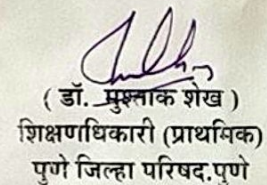 ( डॉ. मुश्ताक शेख )
शिक्षणाधिकारी (प्राथमिक)
पुणे जिल्हा परिषद.पुणे